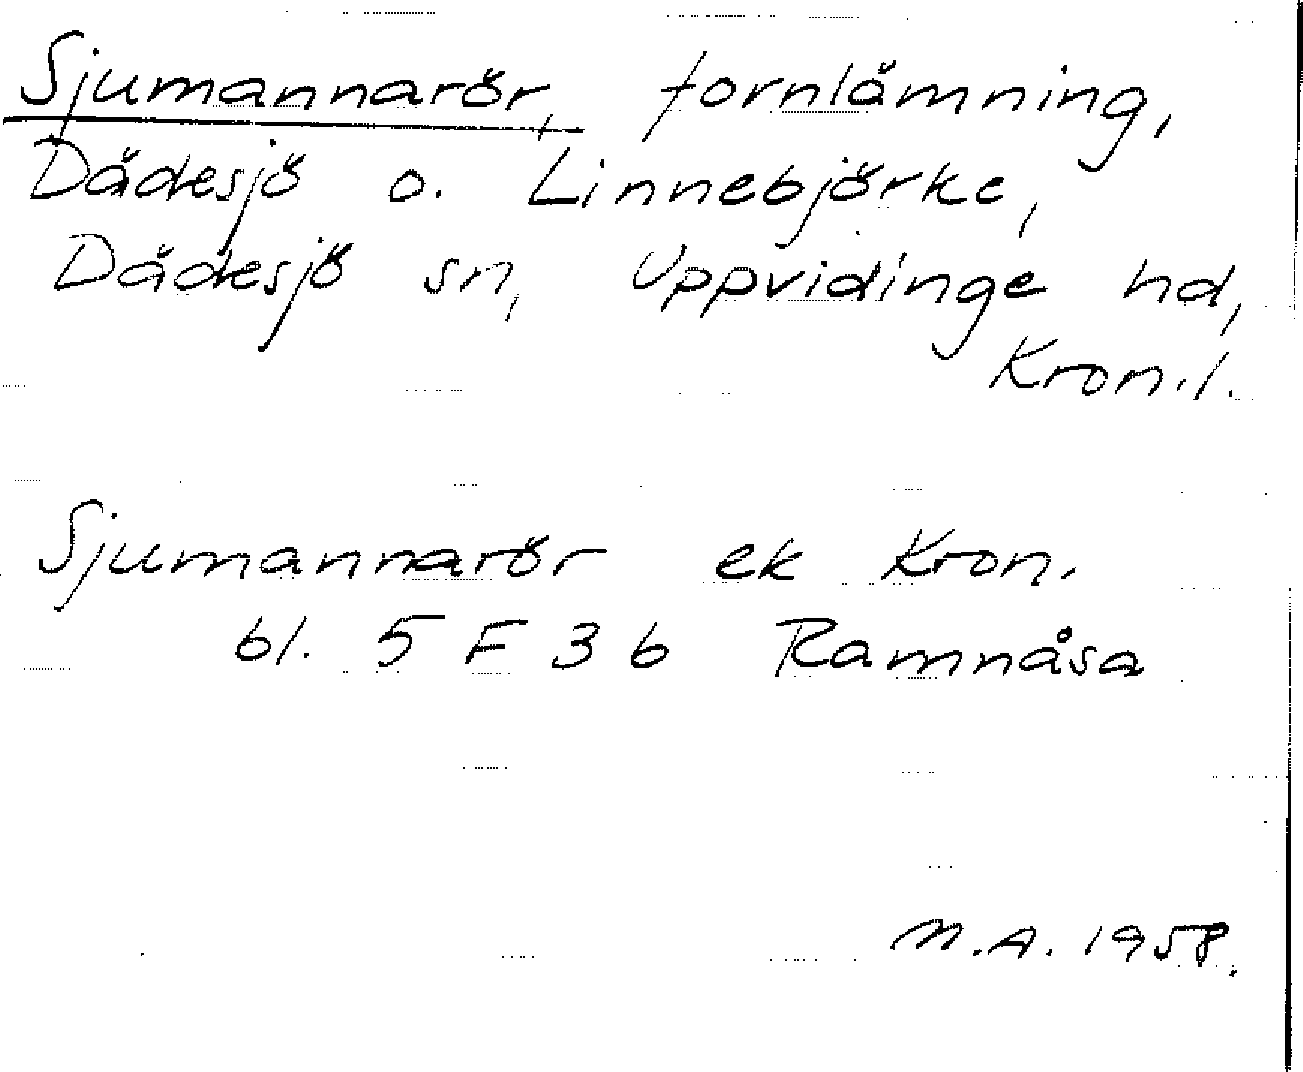 Sjumannarör, fornlämning,
Dädesjö o. Linnebjörke,
Dädesjö sn, Uppvidinge hd,
Kron.l.
Sjumannarör ek Kron.
bl. 5 F 3 b Ramnåsa
M.A. 1958.